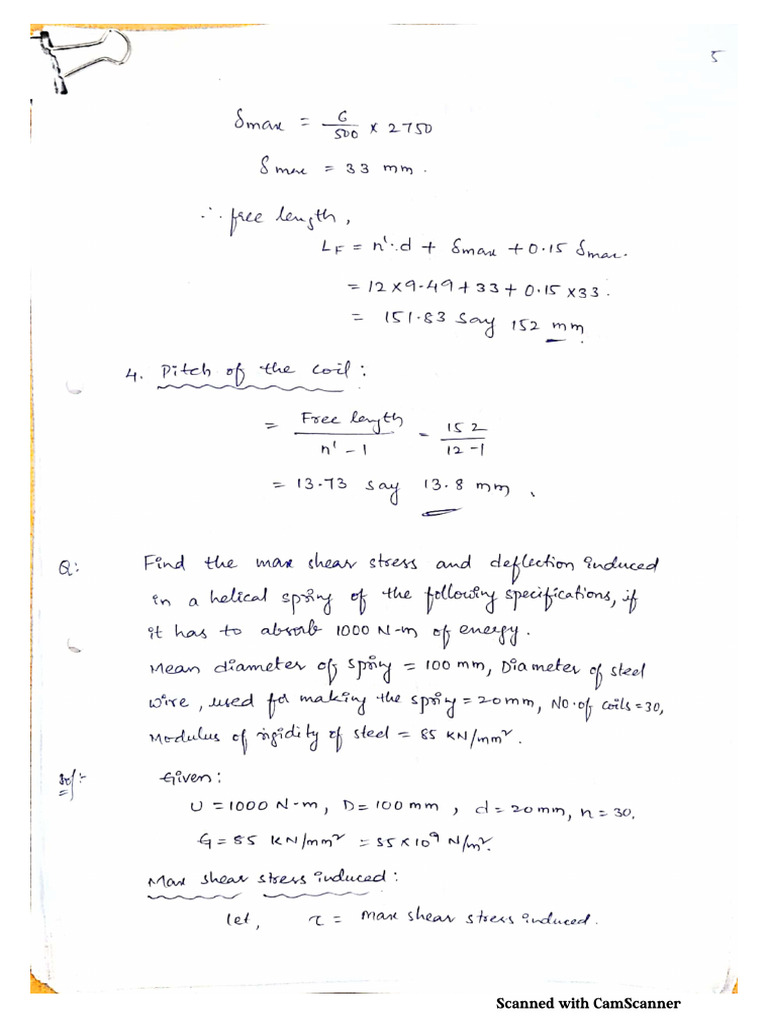 5
δmax = 6/500 × 2750
δmax = 33 mm.
∴ free length,
LF = n'.d + δmax + 0.15 δmax.
= 12 × 9.49 + 33 + 0.15 × 33.
= 151.83 say 152 mm
4. Pitch of the coil:
= Free length / n' - 1 = 152 / 12 - 1
= 13.73 say 13.8 mm.
Q: Find the max shear stress and deflection induced
in a helical spring of the following specifications, if
it has to absorb 1000 N-m of energy.
Mean diameter of spring = 100 mm, Diameter of steel
wire, used for making the spring = 20mm, NO. of coils = 30,
Modulus of rigidity of steel = 85 KN/mm².
Sol:- Given:
U = 1000 N-m, D = 100 mm, d = 20 mm, n = 30.
G = 85 KN/mm² = 85 × 10⁹ N/m².
Max shear stress induced:
let, τ = Max shear stress induced.
Scanned with CamScanner